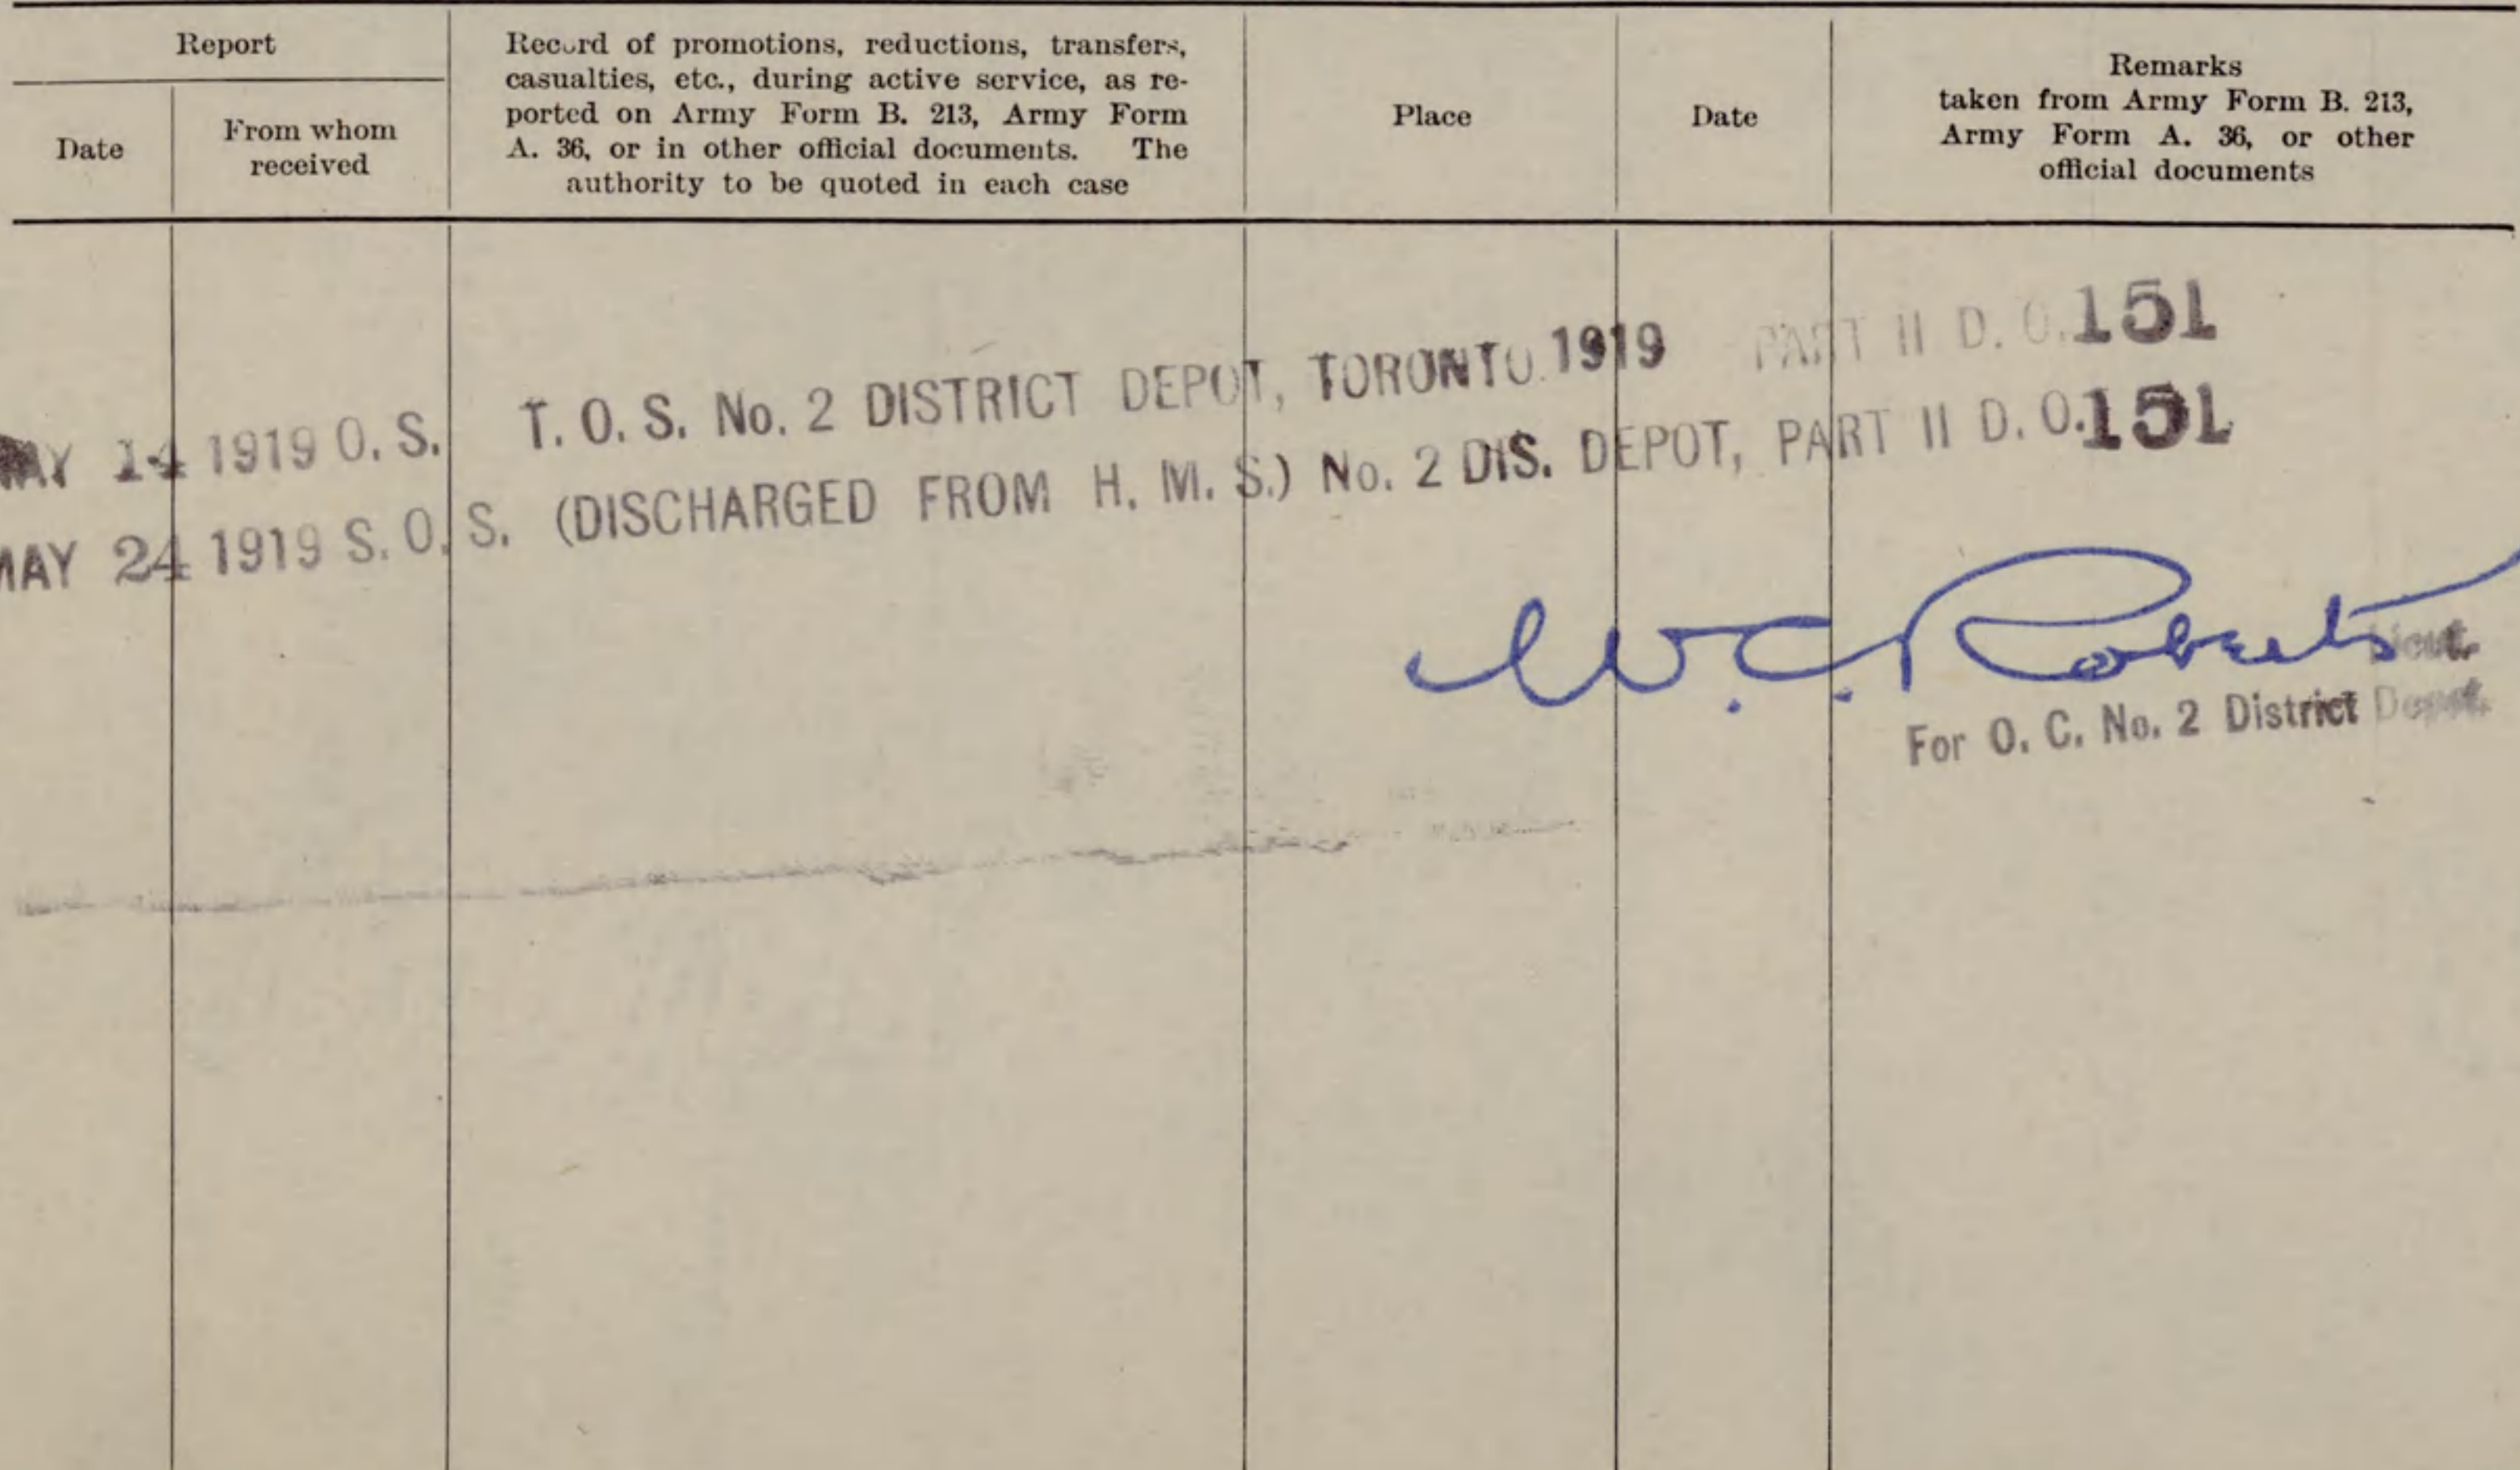 Report
Date
From whom
received
Record of promotions, reductions, transfers,
casualties, etc., during active service, as re-
ported on Army Form B. 213, Army Form
A. 36, or in other official documents. The
authority to be quoted in each case
Place
Date
Remarks
taken from Army Form B. 213,
Army Form A. 36, or other
official documents
MAY 14 1919 O. S. T. O. S. No. 2 DISTRICT DEPOT, TORONTO 1919 PART II D. O. 151
MAY 24 1919 S. O. S. (DISCHARGED FROM H. M. S.) No. 2 DIS. DEPOT, PART II D. O. 151
W. C. Roberts Lieut.
For O. C. No. 2 District Depot.